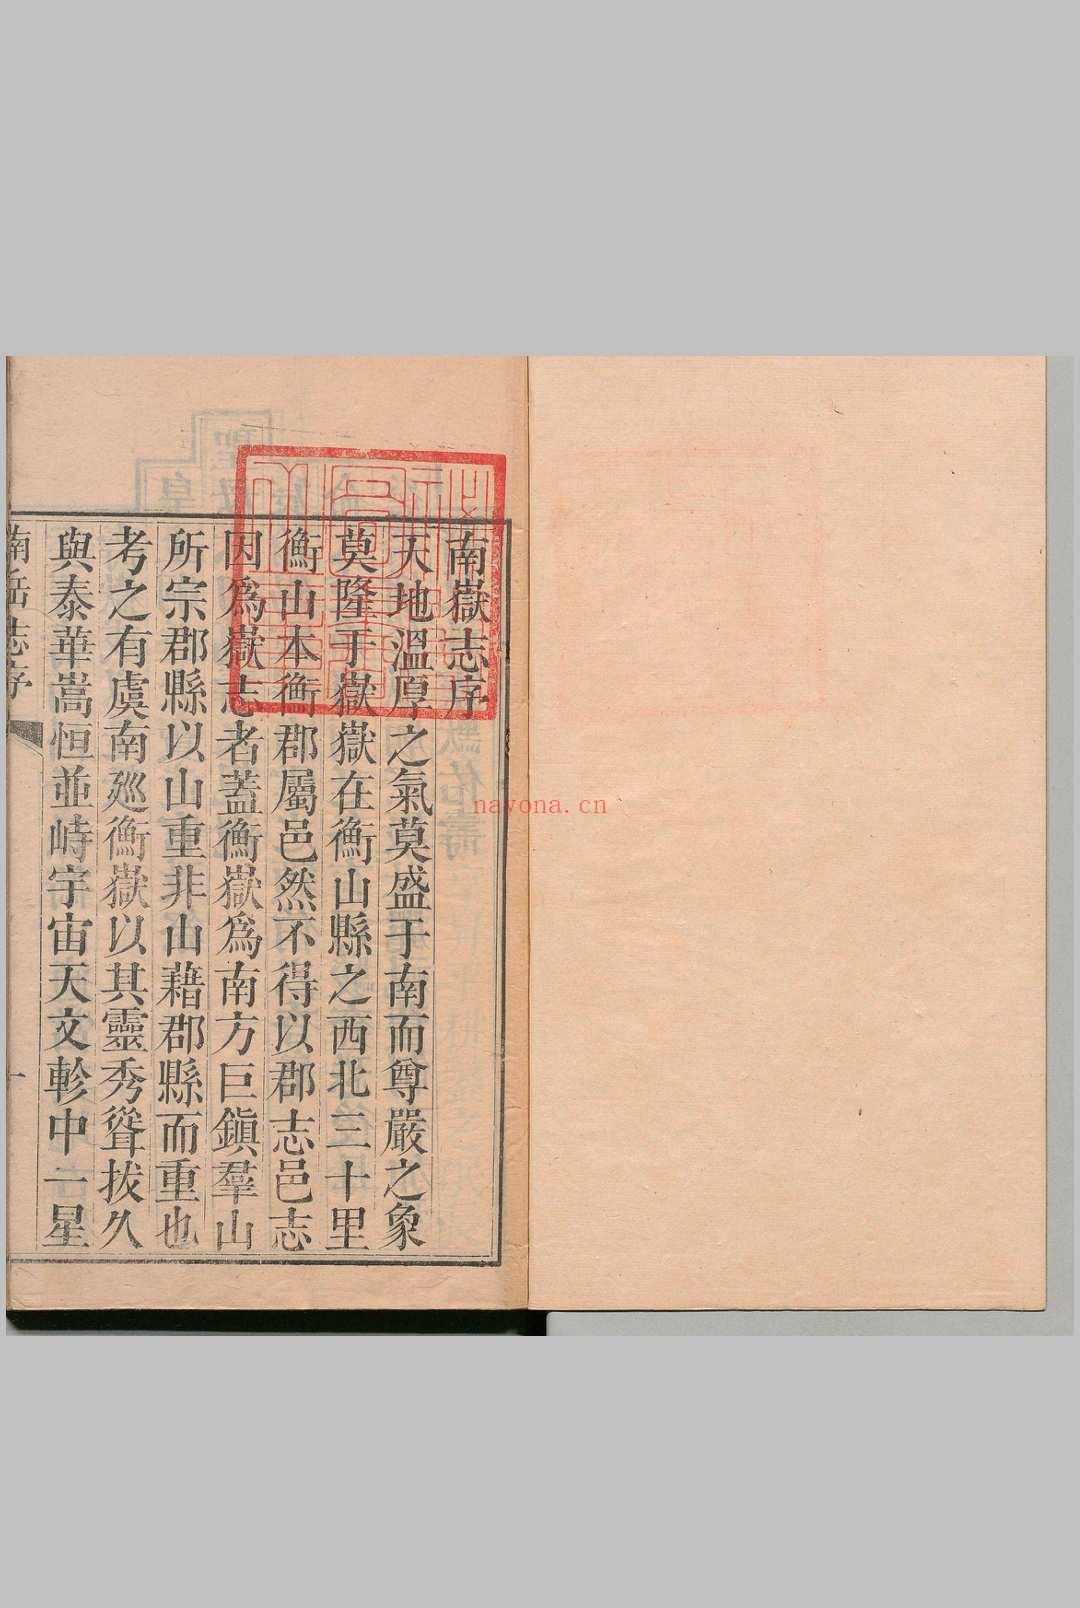 南嶽志序
天地溫厚之氣莫盛于南而尊嚴之象
莫隆于嶽嶽在衡山縣之西北三十里
衡山本衡郡屬邑然不得以郡志邑志
因爲嶽志者蓋衡嶽爲南方巨鎭羣山
所宗郡縣以山重非山藉郡縣而重也
考之有虞南廵衡嶽以其靈秀聳拔久
與泰華嵩恒並峙宇宙天文軫中一星
南岳志序
一
nayona.cn